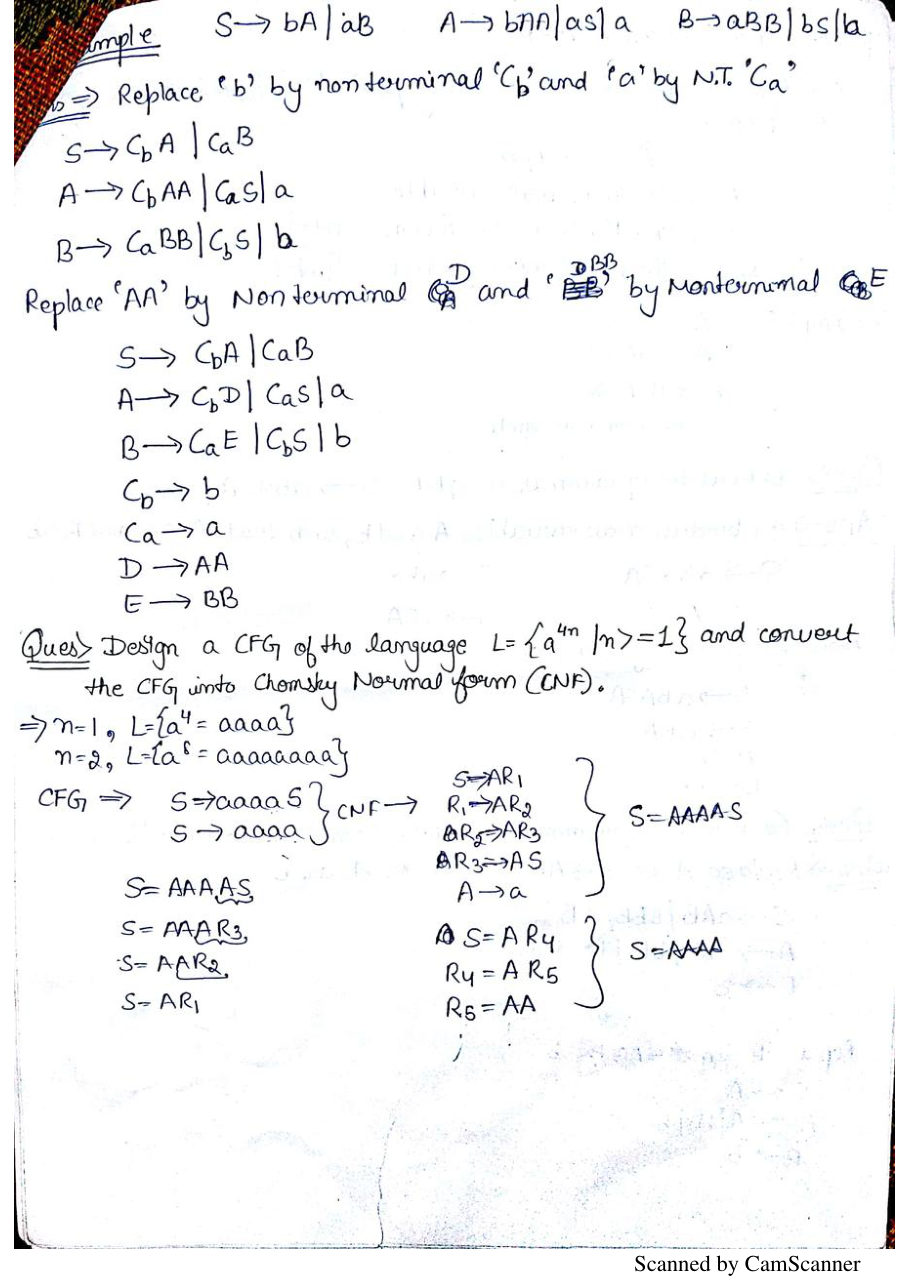 ample S → bA | aB A → bAA | aS | a B → aBB | bS | b
⇒ Replace 'b' by nonterminal 'Cb' and 'a' by N.T. 'Ca'
S → CbA | CaB
A → CbAA | CaS | a
B → CaBB | CbS | b
Replace 'AA' by Nonterminal D and 'BB' by Nonterminal E
S → CbA | CaB
A → CbD | CaS | a
B → CaE | CbS | b
Cb → b
Ca → a
D → AA
E → BB
Ques> Design a CFG of the language L = {a^4n | n >= 1} and convert
the CFG into Chomsky Normal form (CNF).
⇒ n=1, L={a^4 = aaaa}
n=2, L={a^8 = aaaaaaaa}
CFG ⇒ S → aaaaS
S → aaaa
} CNF →
S → AR1
R1 → AR2
R2 → AR3
R3 → AS
A → a
} S = AAAAS
S = AAAAS
S = AAAR3
S = AAR2
S = AR1
S = A R4
R4 = A R5
R5 = AA
} S = AAAA
;
Scanned by CamScanner